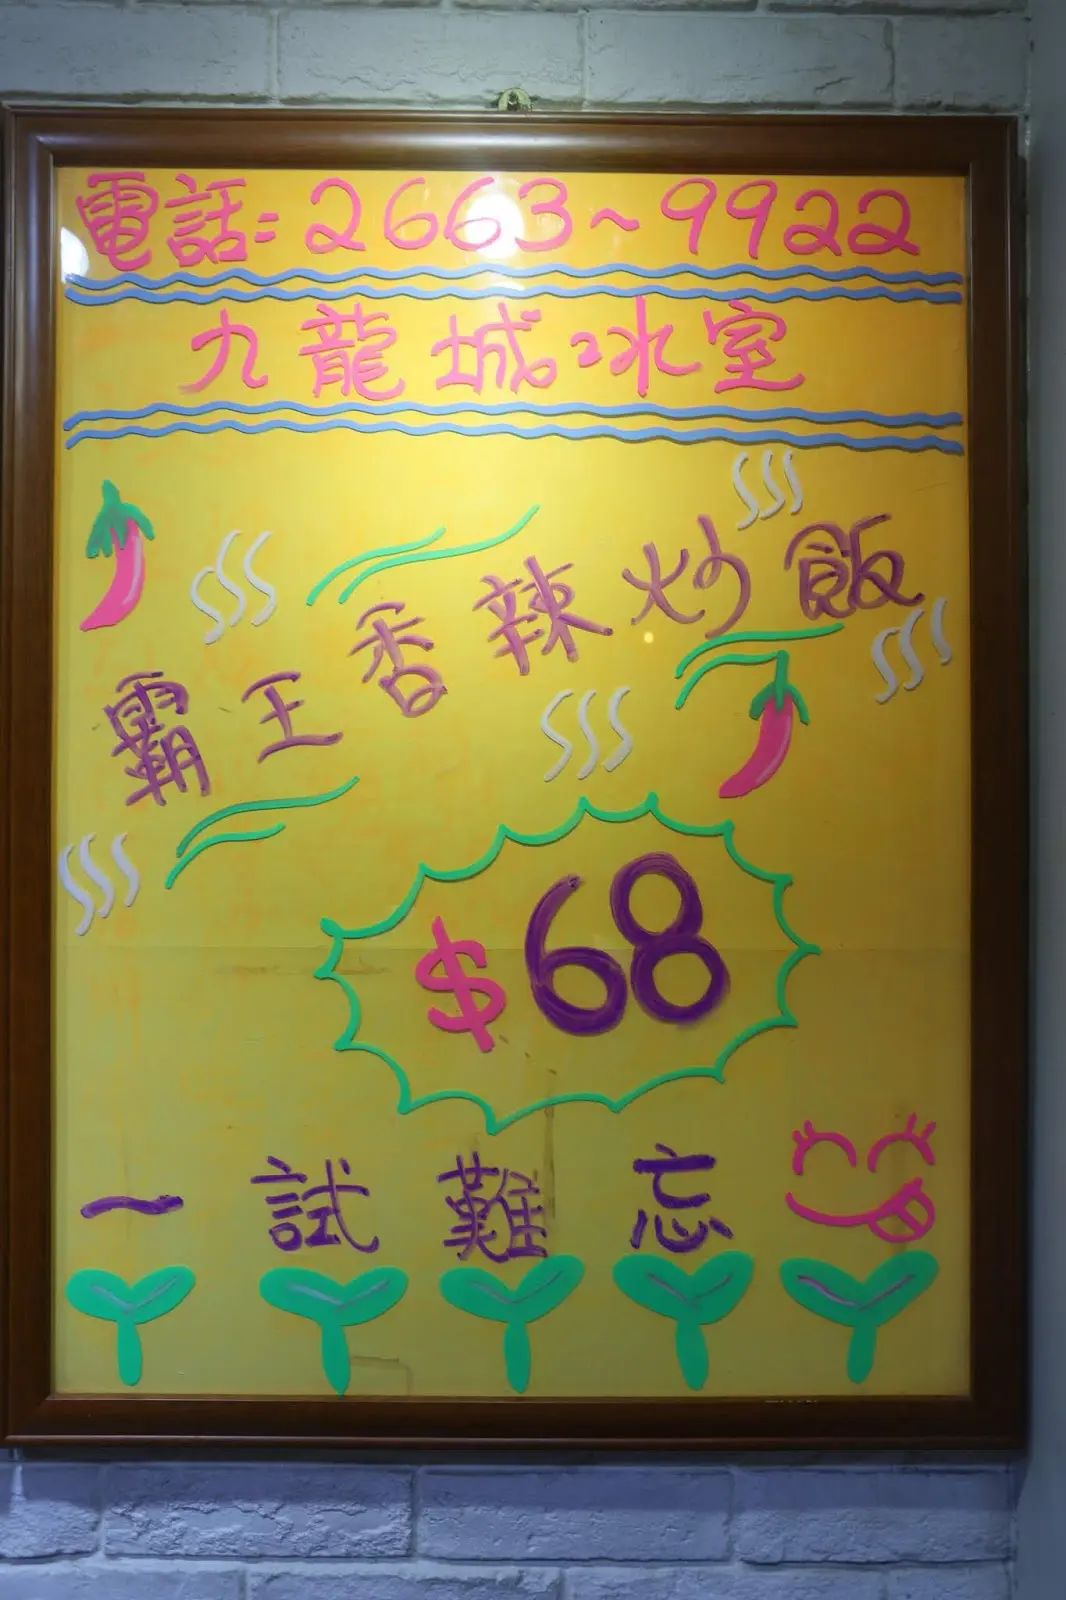 電話:2663~9922
九龍城冰室
霸王香辣炒飯
$68
一試難忘